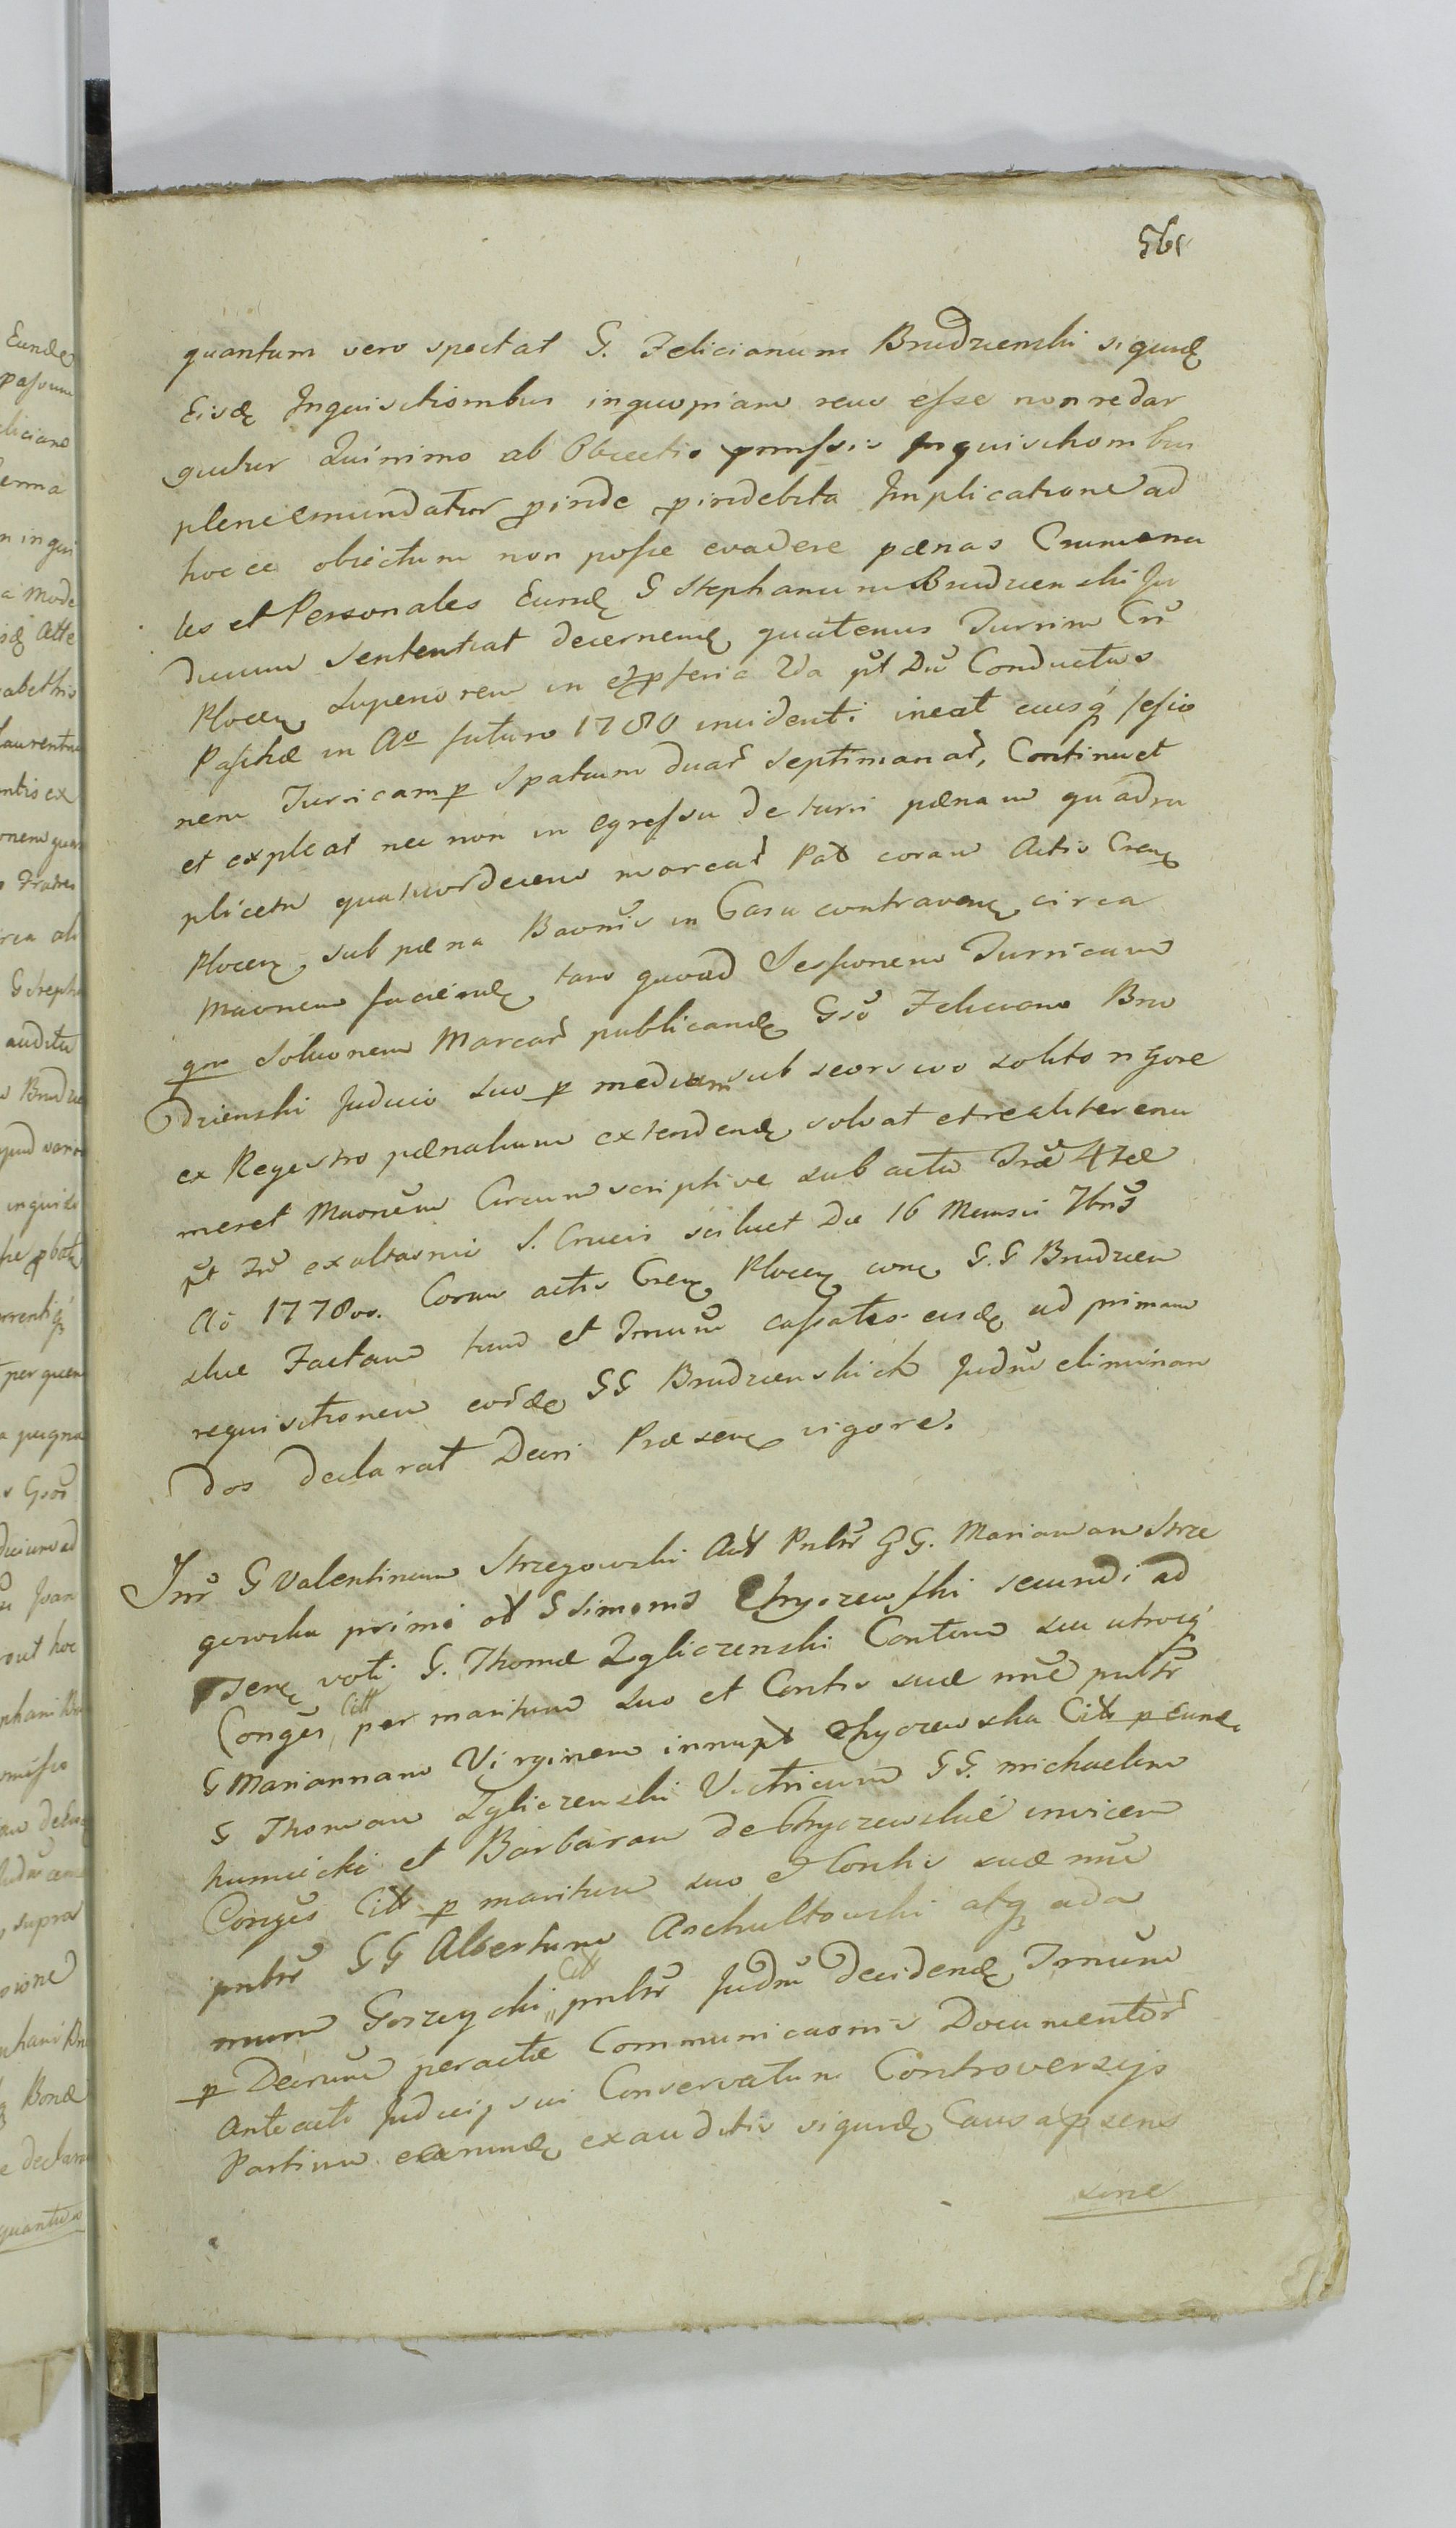 561
quantum vero spectat G. Felicianum Brudzienski siquidę
Eisdę Inquisitionibus inquopiam reus esse non redar
guitur Quinimo ab Obiectis pmissis Inquisitionibus
plene emundatur pinde pindebita Implicatione ad
hocce obiectum non posse evadere pænas Crumena
les et Personales Eundę G Stephanum Brudzienski Ju
dicium Sententiat decernendę quatenus Turrim Crū
Plocen Superiorem in feria 2da pt Dū Conductus
Paschæ in Ao futuro 1780 incidenti ineat eiusq sessio
nem Turricam p spatium duar Septimanar, Continuet
et expleat nec non in egressu de turri pænam quadru
plicem quatuordecem marcar Pat coram Actis Cren
Plocen sub pæna Baonis in Casu contraven circa
Maonem faciendę tam quoad Sessionem Turricam
qm Soluonem Marcar publicandę Gso Feliciano Bru
dzienski Judicio suo p medium sub seorsivo solito rigore
ex Regestro pænalium extendendę solvat et realiter enu
meret Maonem Circumscriptive sub actu Fræ 4tæ
pt Fm exaltaonis S. Crucis scilicet Die 16 Mensis 7bris
Ao 1778vo. Coram actis Cren Plocen conę G.G Brudzien
skie Factam tum et Trnum cassatos eisdę ad primam
requisitionem eordę GG Brudzienskich Judm eliminan
dos declarat Decri Præsenę vigore.
Inr G Valentinum Strzegowski Act Pnltr GG. Mariannam Strze
gowska primi ot G Simonis Chyczewski secundi ad
psenę voti G. Thomæ Zgliczenski Contem seu utrosq
Conges Citt per maritum suo et Contis suæ nne pnltr
G Mariannam Virginem innupt Chyczewska Citt p Eundę
G Thomam Zgliczenski Vitricum GG. Michaelem
humięcki et Barbaram de Chyczewskie invicem
Conges Citt p maritum suo et Contis suæ nne
pnltr GG Albertum Aschultowski atq ada
mum Gorzycki Citt pnltr Judm decidendę Trnum
p Decrum peractæ Communicaonis Documentor
Anteacti Judicij sui Conservatum Controversijs
Partium earundę exauditis siquidę Causa psens
sine